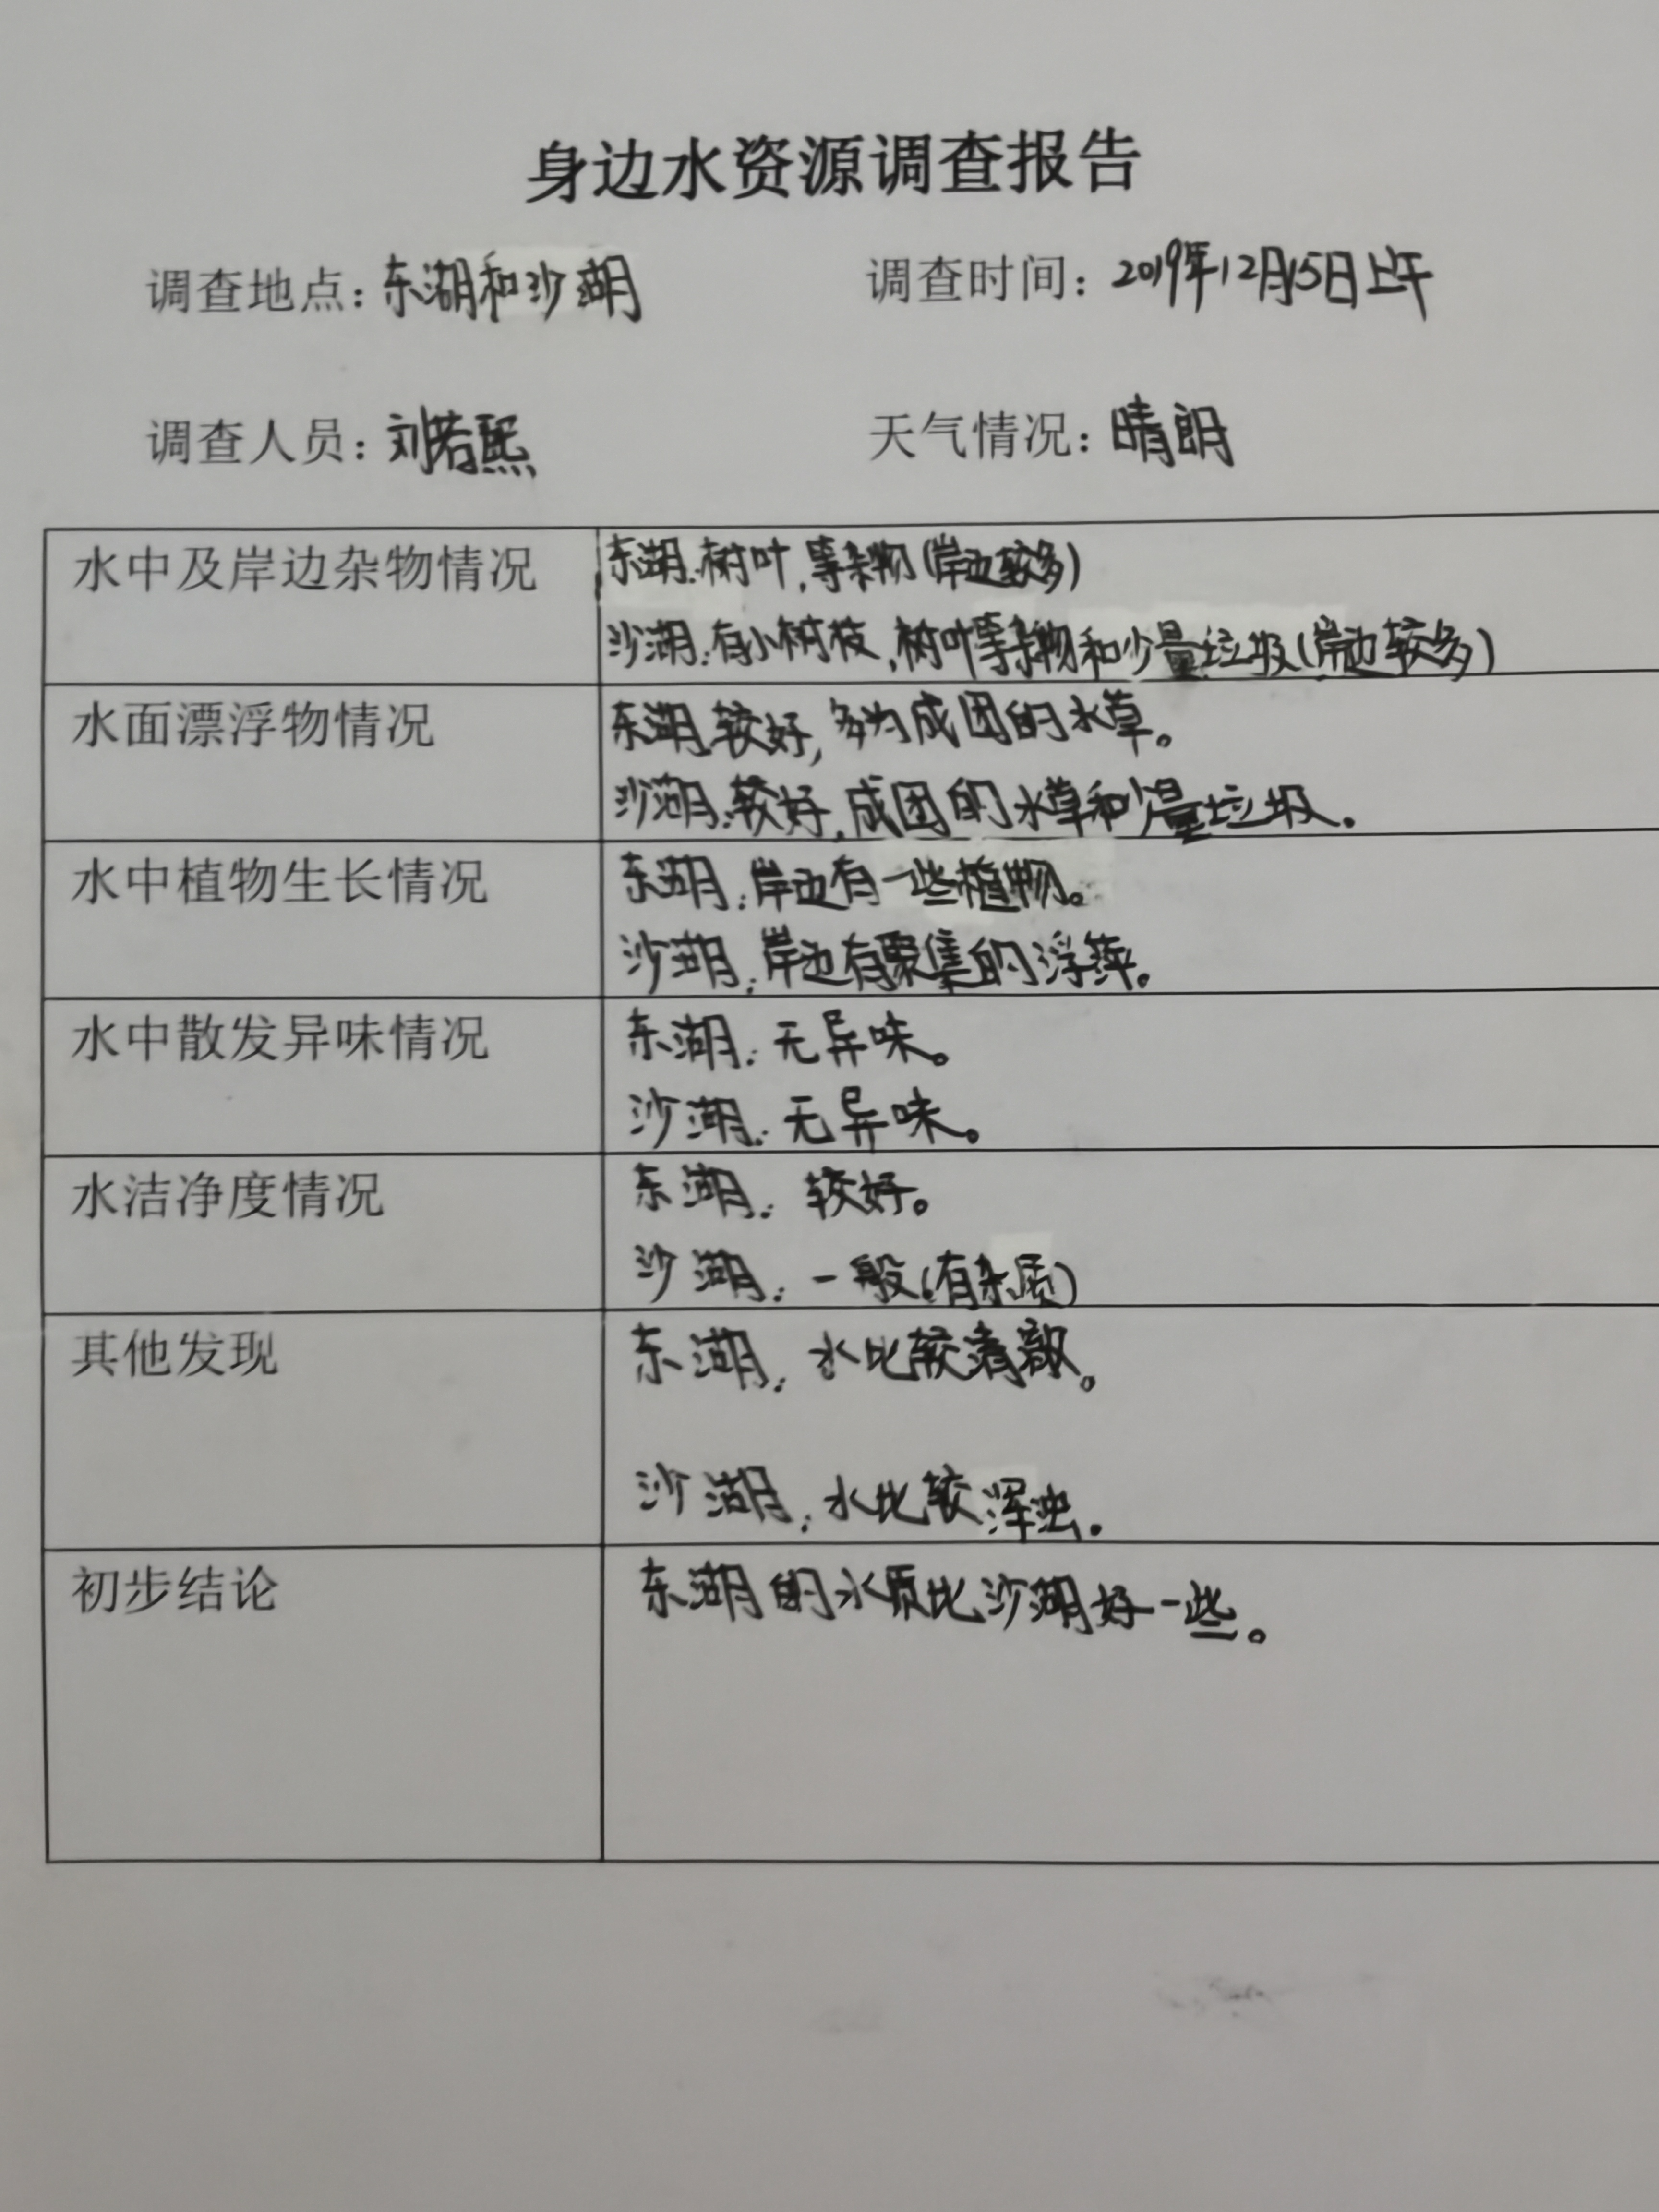 身边水资源调查报告
调查地点：东湖和沙湖 调查时间：2019年12月15日上午
调查人员：刘若熙 天气情况：晴朗
水中及岸边杂物情况 东湖：树叶，等杂物(岸边较多)
沙湖：有小树枝，树叶等杂物和少量垃圾(岸边较多)
水面漂浮物情况 东湖：较好，多为成团的水草。
沙湖：较好，成团的水草和少量垃圾。
水中植物生长情况 东湖：岸边有一些植物。
沙湖：岸边有聚集的浮萍。
水中散发异味情况 东湖：无异味。
沙湖：无异味。
水洁净度情况 东湖：较好。
沙湖：一般(有杂质)
其他发现 东湖：水比较清澈。
沙湖：水比较浑浊。
初步结论 东湖的水质比沙湖好一些。